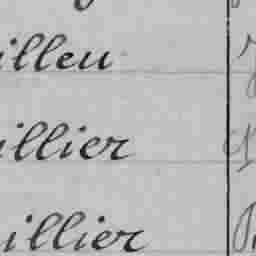 illeu
illier
illier